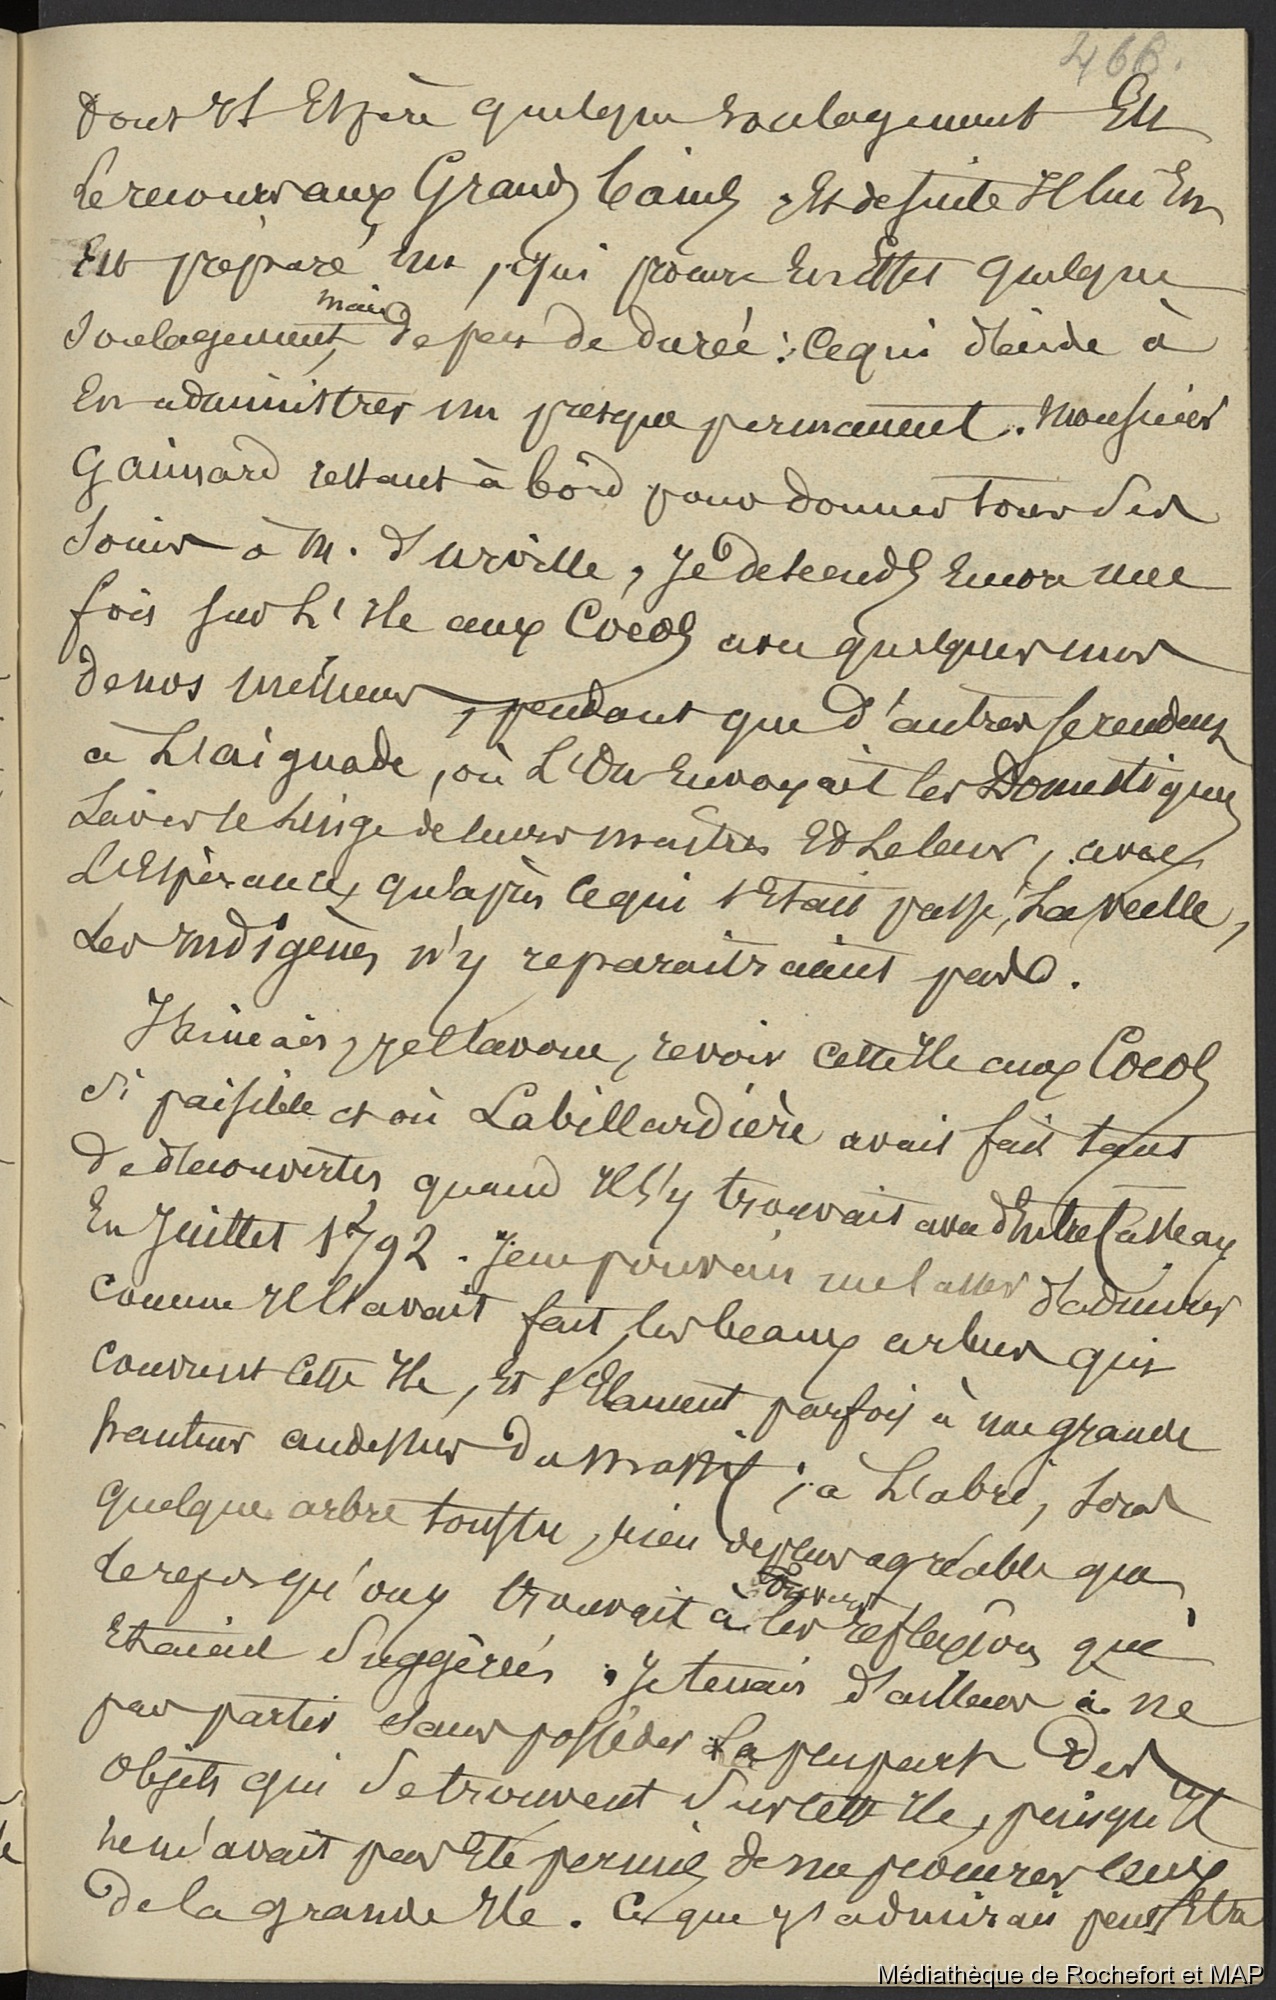 466.
dont Il Espère quelque soulagement Est
Le recours aux Grands bains, Et desuite Il lui En
Est préparé un, qui procure En Effet quelque
Soulagement, mais de peu de durée : Ce qui décide à
En administrer un presque permanent. Monsieur
Gaimard restant à bord pour donner tous Ses
Soins à M. d'Urville, Je descends Encore une
fois sur L'Ile aux Cocos avec quelques uns
de nos Messieurs, pendant que d'autres se rendent
à L'aiguade, où L'On Envoyait les Domestiques
Laver le Linge de leurs maîtres Et Le leur, avec
L'Espérance, qu'après Ce qui s'Etait passé, La veille,
Les Indigènes n'y reparaitraient pas.
J'aimais, je l'avoue, revoir cette Ile aux Cocos
Si paisible et où Labillardière avait fait tant
de découvertes quand Il s'y trouvait avec d'Entrecasteaux
En Juillet 1792. Je ne pouvais me lasser d'admirer
comme Il l'avait fait, les beaux arbres qui
couvrent Cette Ile, Et s'Elancent parfois à une grande
hauteur audessus du massif ; à L'abri, Sous
quelque arbre touffu, rien de plus agréable que
le repos qu'on y trouvait à les reflexions que
Etaient Suggérées. Je tenais d'ailleurs à ne
pas partir Sans posséder La plupart des
objets qui Se trouvent Sur cette Ile, puisqu'Il
ne m'avait pas Eté permis de me procurer ceux
de la grande Ile. Ce que j'y admirais peut Etre
Médiathèque de Rochefort et MAP